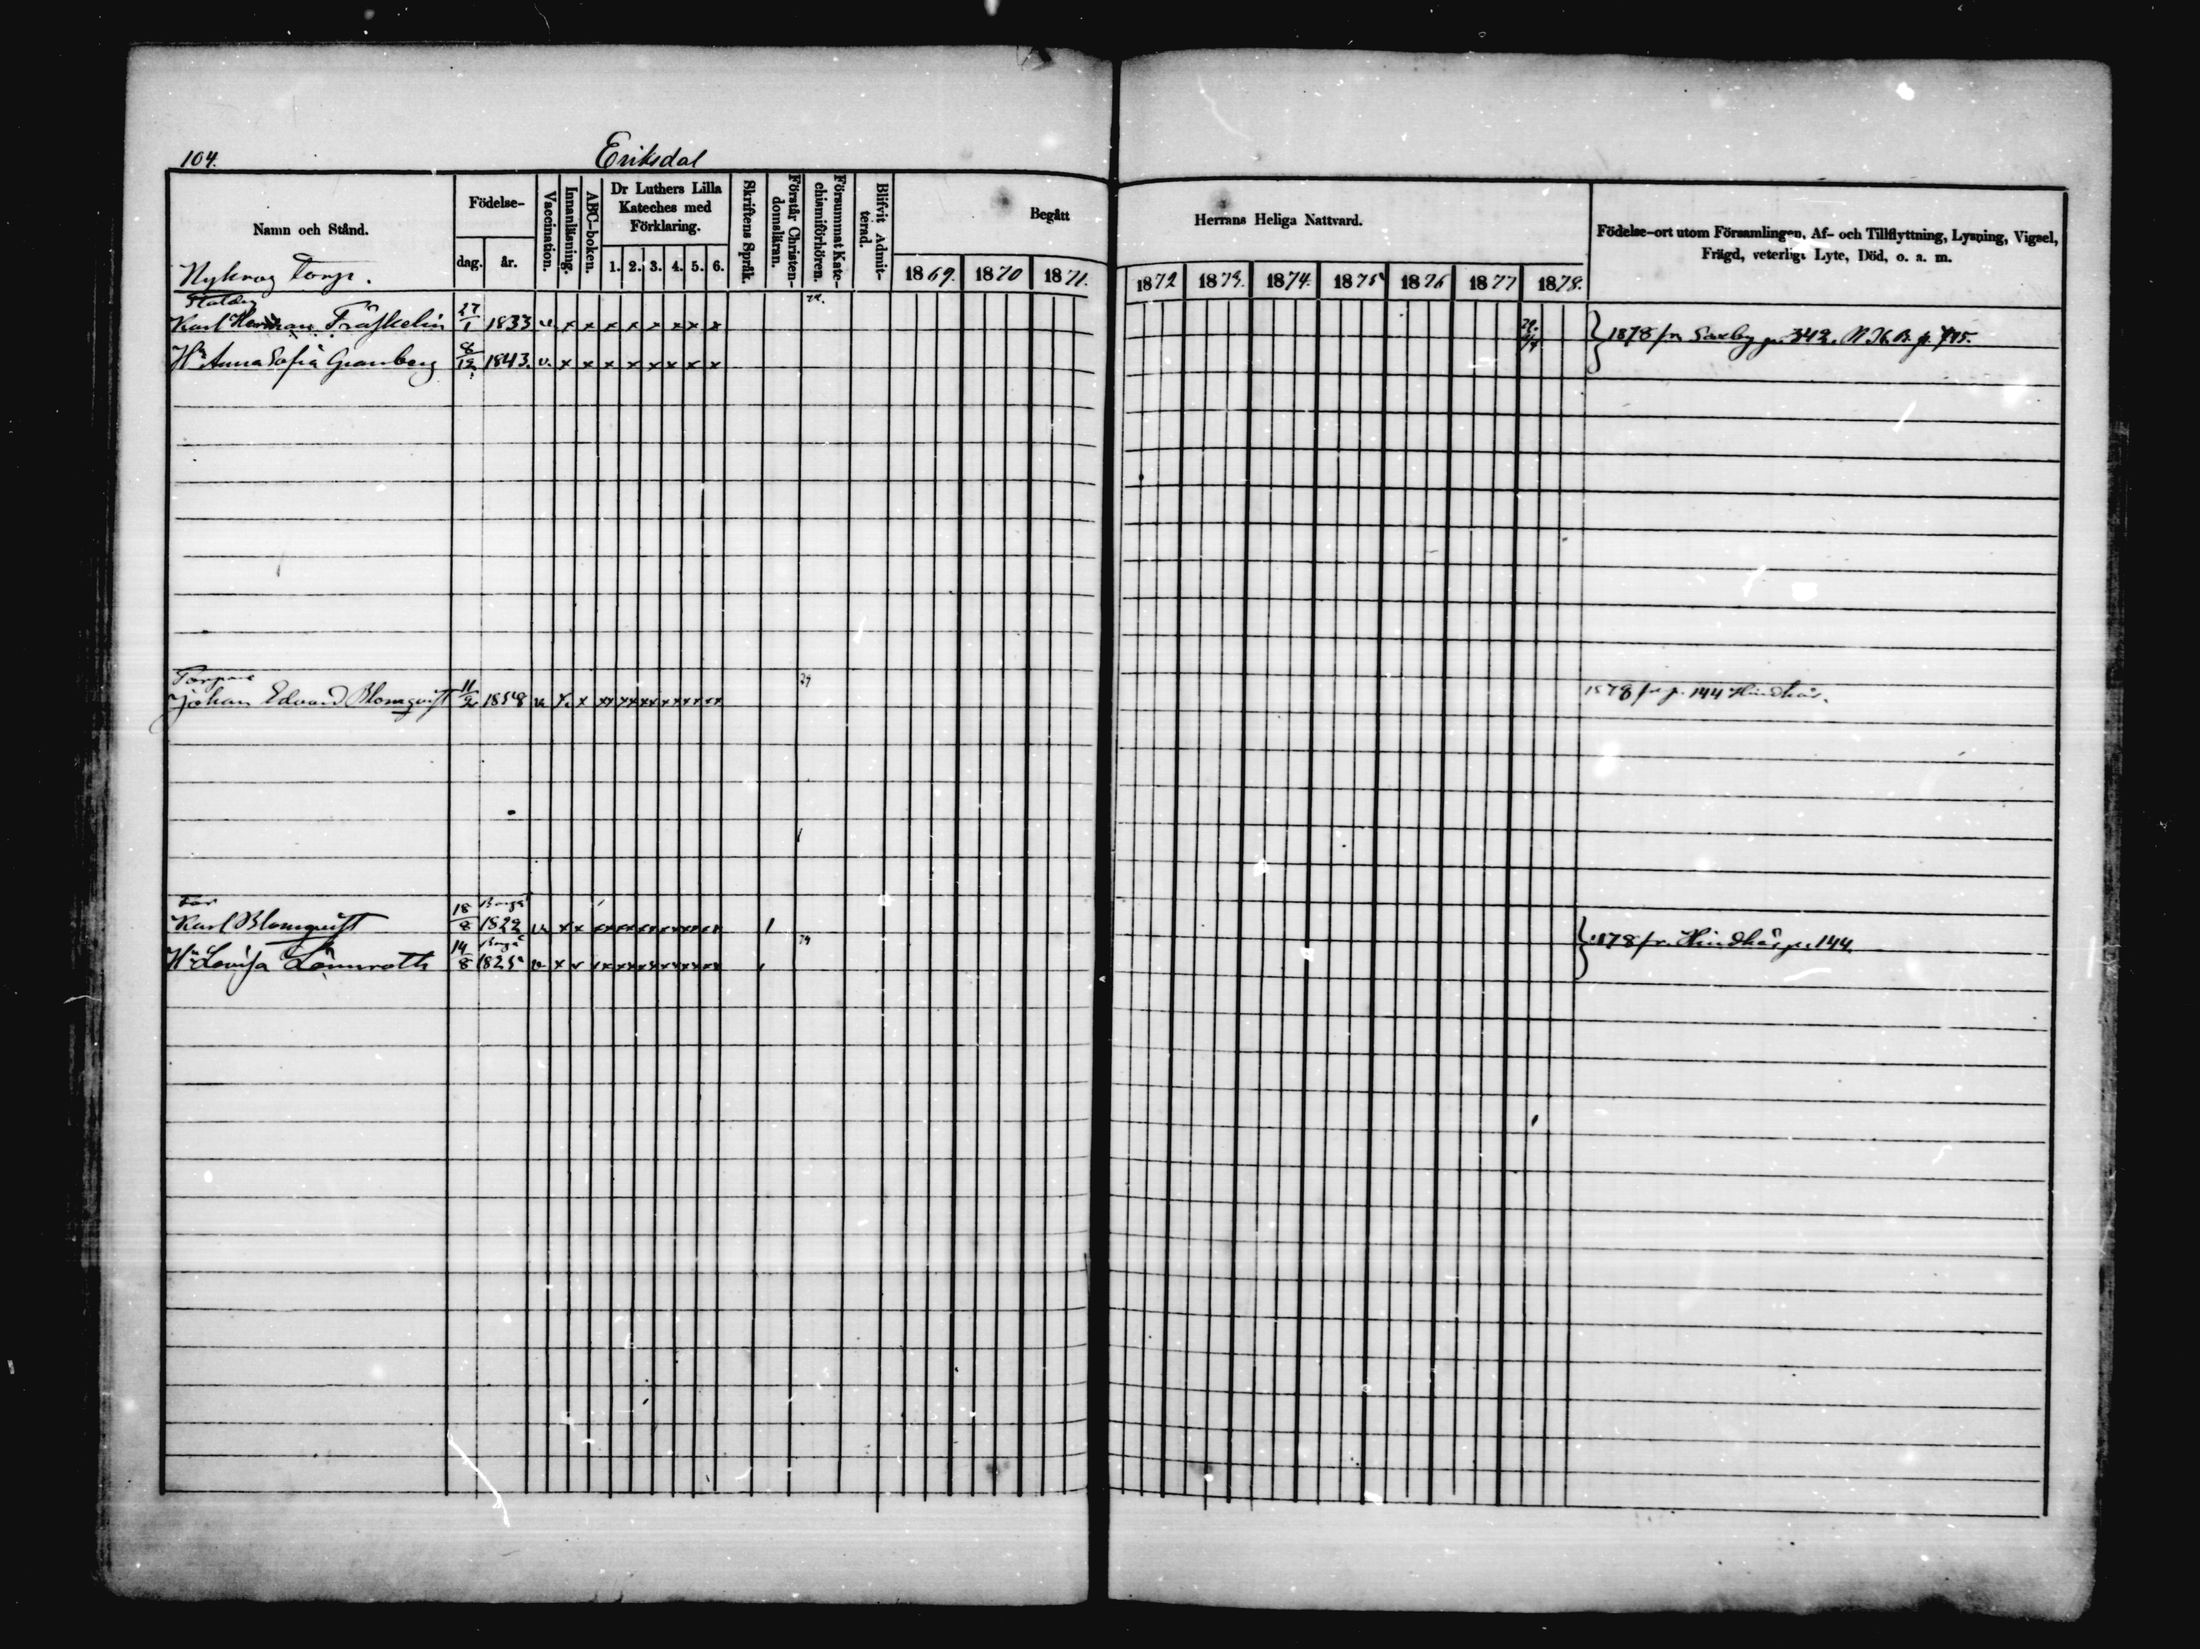 104.
Eriksdal
Namn och Stånd.
Födelse-
dag. år.
Vaccination.
Innanläsning.
ABC-boken.
Dr Luthers Lilla
Kateches med
Förklaring.
1. 2. 3. 4. 5. 6.
Skriftens Språk.
Förstår Christen-
domsläran.
Försummat Kate-
chismiförhören.
Blifvit Admit-
terad.
Begått
Herrans Heliga Nattvard.
1869. 1870 1871.
1872 1873. 1874. 1875 1876 1877 1878.
Födelse-ort utom Församlingen, Af- och Tillflyttning, Lysning, Vigsel,
Frägd, veterligt Lyte, Död, o. a. m.
Torp.
Karl Herman 27/1 1833 v. x x x x x x x x
1878 fr Saxby p. 342. N.K.B. p.
Hu Anna Sofia Granberg 8/12 1843. v. x x x x x x x x
Torpare
Johan Edvard Blomqvist 11/2 1858 v x x xx xx xx xx xx xx
1878 fr p. 144 Hindhår.
Far
Borgå
Karl Blomqvist 18/8 1822 v x x xx xx xx xx xx xx
Borgå
Hu Lovisa Lönnroth 14/8 1825 v x x xx xx xx xx xx xx
1878 fr. Hindhår p. 144